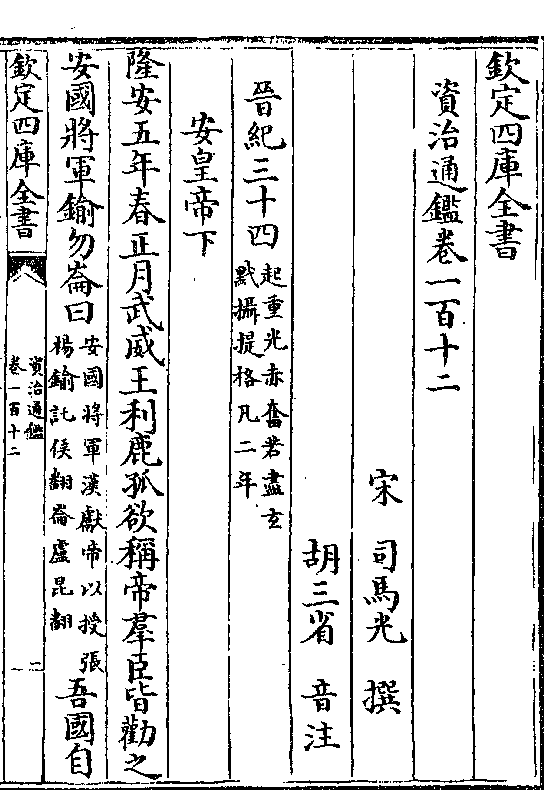 欽定四庫全書
資治通鑑卷一百十二
宋 司馬光 撰
胡三省 音注
晉紀三十四
起重光赤奮若盡玄
黓攝提格凡二年
安皇帝下
隆安五年春正月武威王利鹿孤欲稱帝羣臣皆勸之
安國將軍鍮勿崙曰
安國將軍漢獻帝以授張
楊鍮託侯翻崙盧昆翻
吾國自
欽定四庫全書
資治通鑑
卷一百十二
一
二